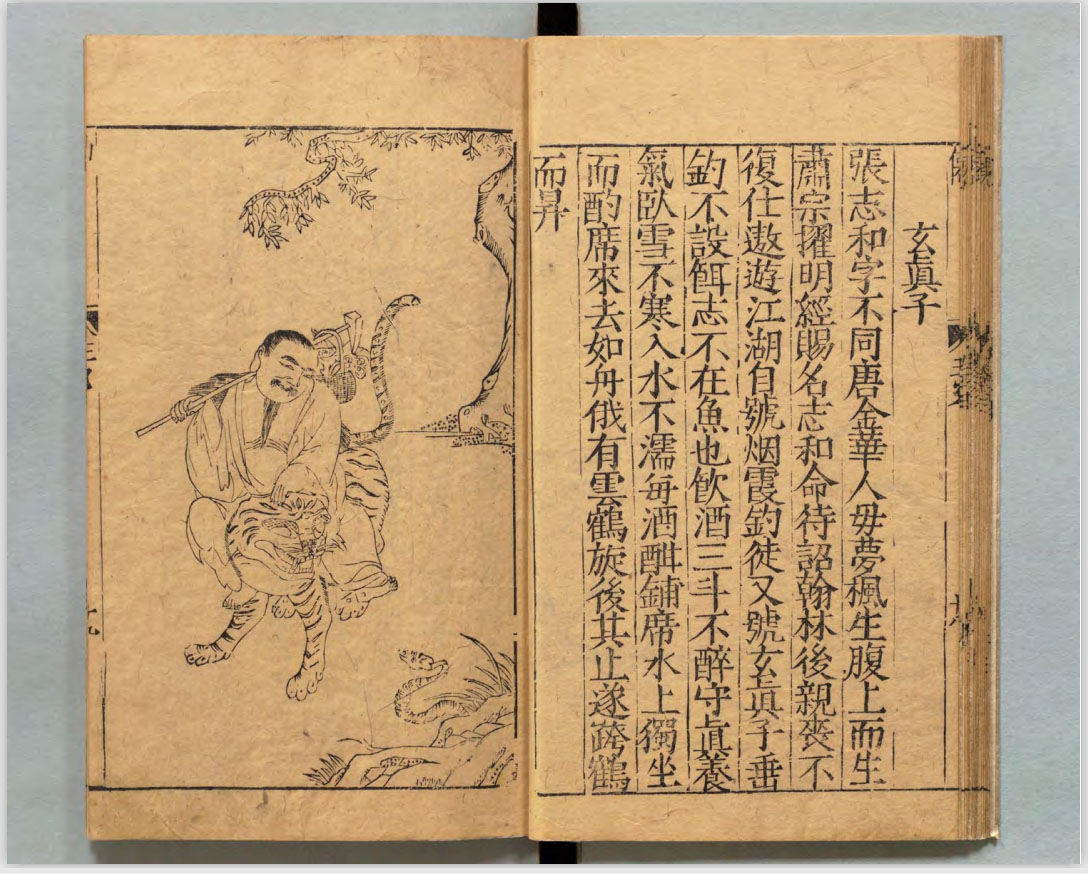 玄眞子
張志和字不同唐金華人毋夢楓生腹上而生
肅宗擢明經賜名志和命待詔翰林後親喪不
復仕遨遊江湖自號烟霞釣徒又號玄眞子垂
釣不設餌志不在魚也飲酒三斗不醉守眞養
氣臥雪不寒入水不濡每酒酣鋪席水上獨坐
而酌席來去如舟俄有雲鶴旋後其上遂跨鶴
而昇